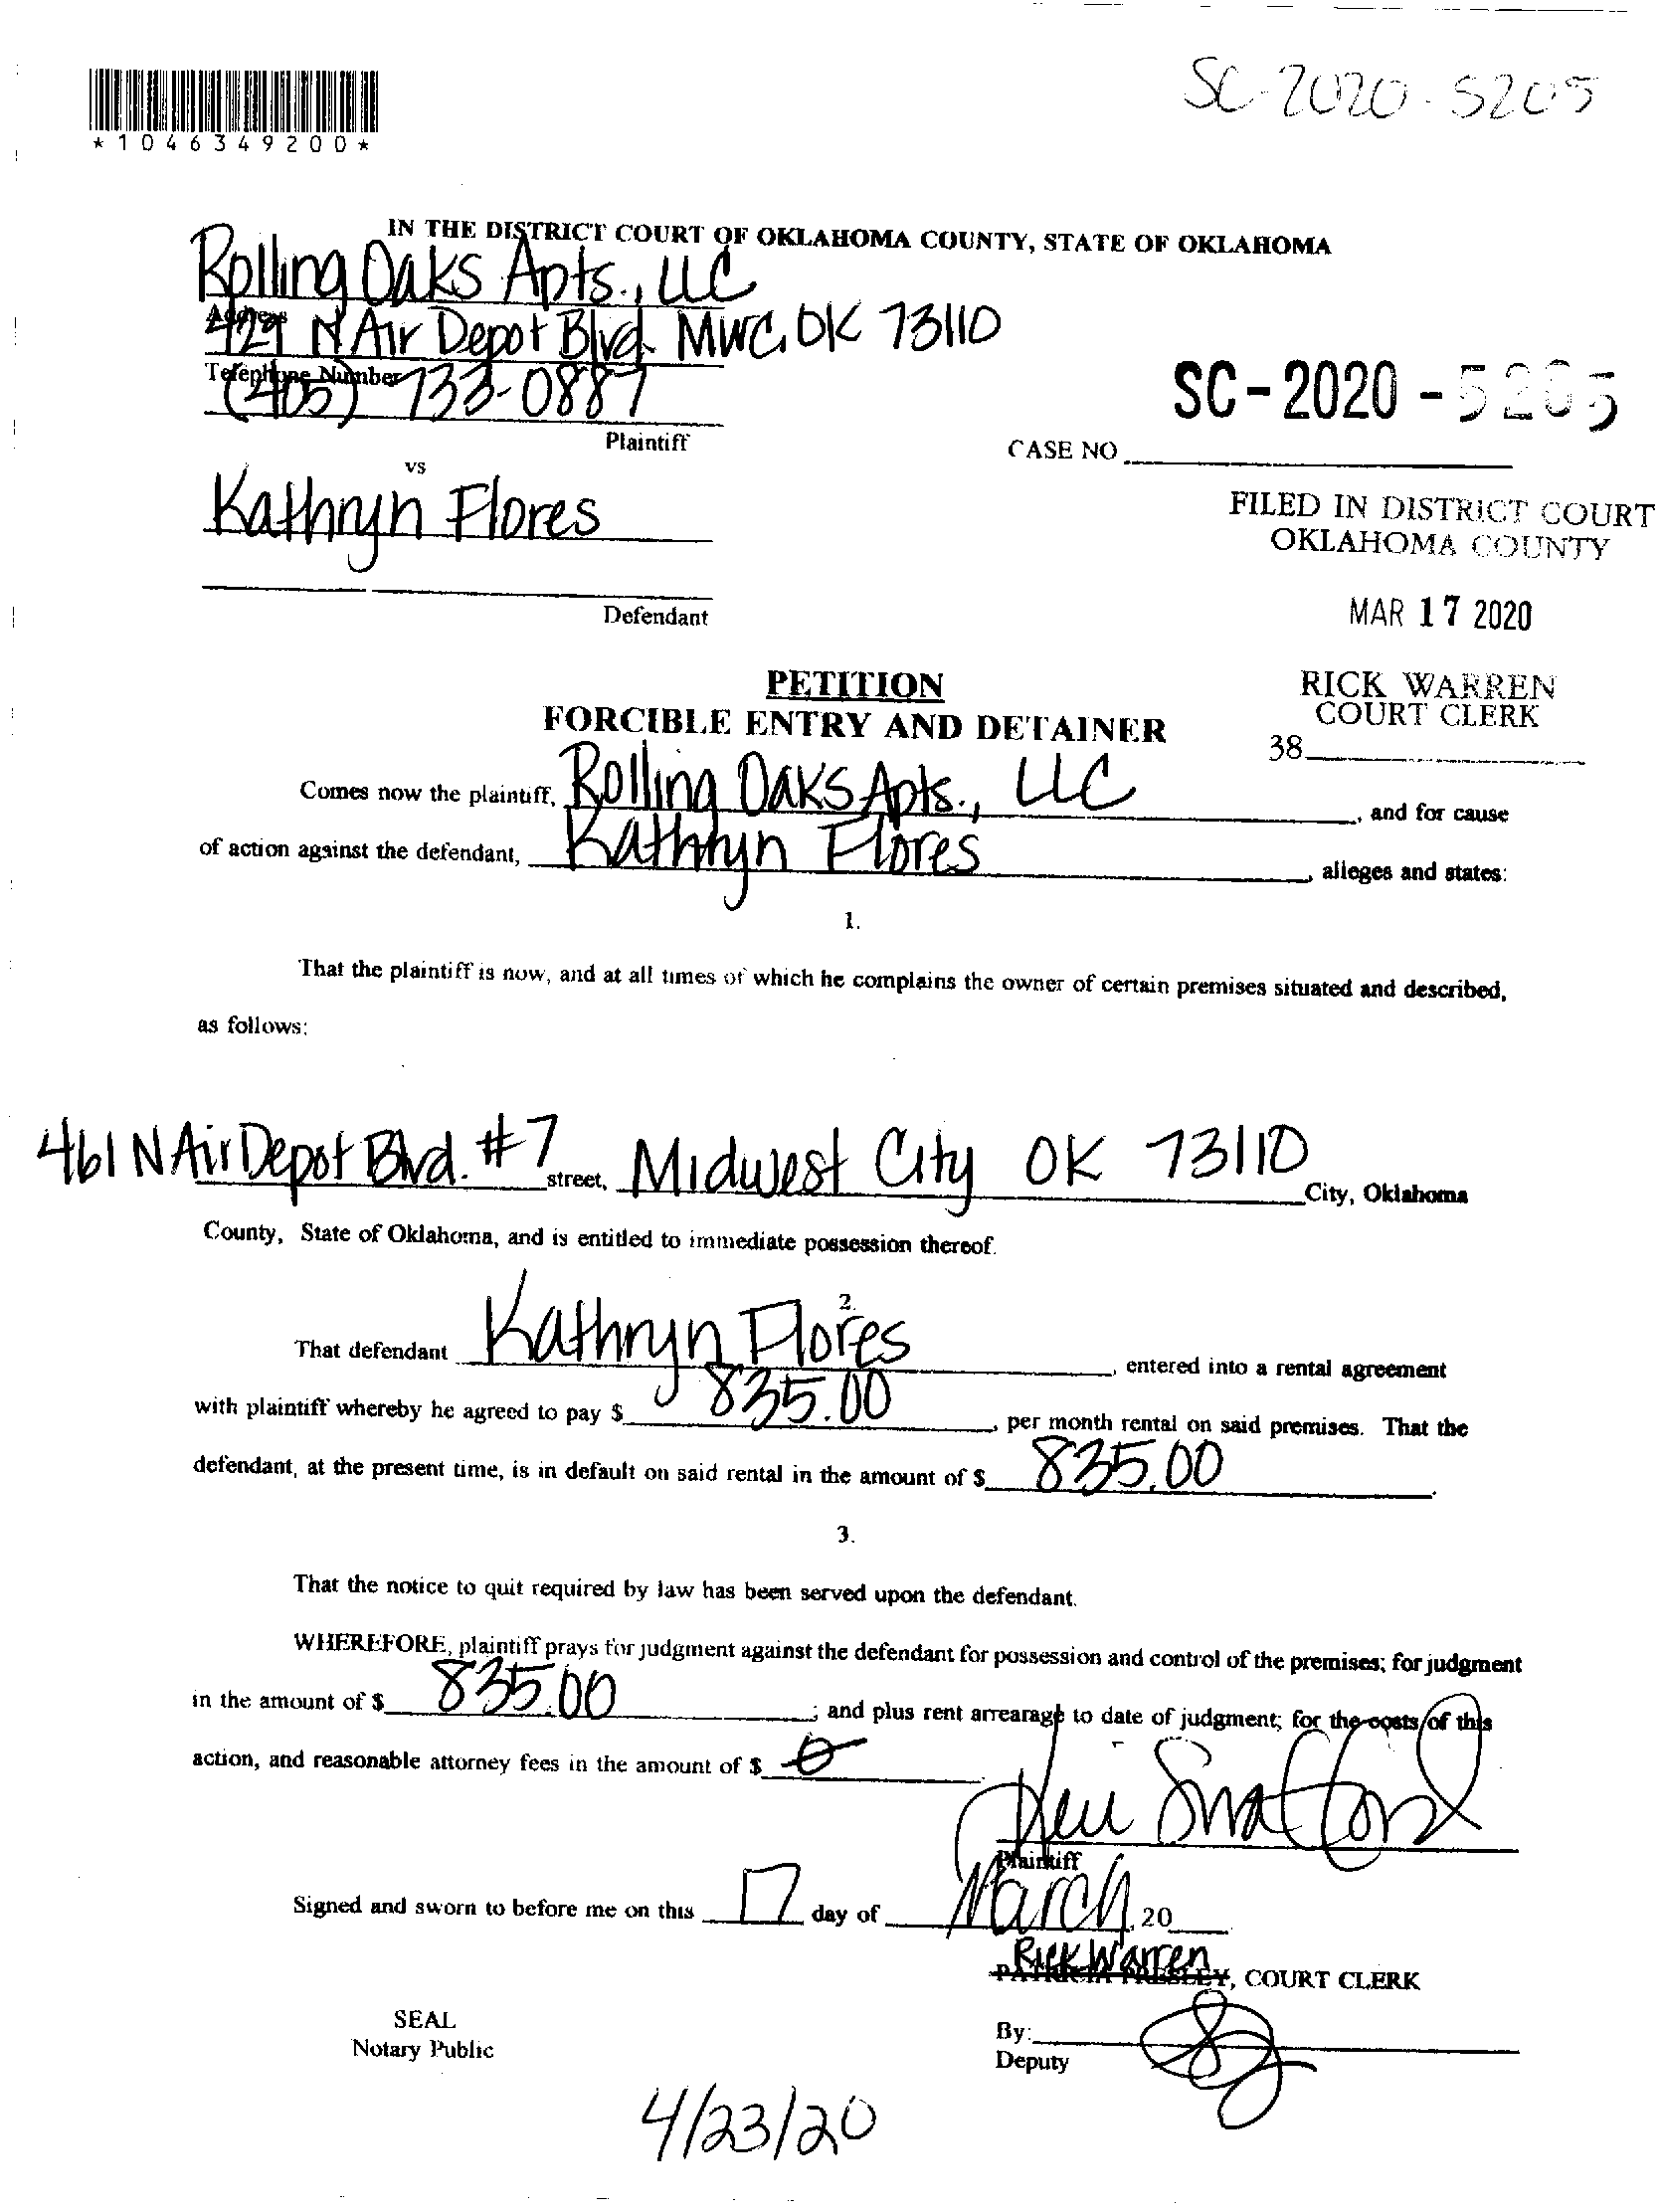 SC-2020-5205
*1046349200*
IN THE DISTRICT COURT OF OKLAHOMA COUNTY, STATE OF OKLAHOMA
Rolling Oaks Apts., LLC
Address
429 N Air Depot Blvd. MWC, OK 73110
Telephone Number
(405) 733-0887
Plaintiff
SC-2020-5205
CASE NO
vs
Kathryn Flores
Defendant
FILED IN DISTRICT COURT
OKLAHOMA COUNTY
MAR 17 2020
RICK WARREN
COURT CLERK
38
PETITION
FORCIBLE ENTRY AND DETAINER
Comes now the plaintiff, Rolling Oaks Apts., LLC, and for cause
of action against the defendant, Kathryn Flores, alleges and states:
1.
That the plaintiff is now, and at all times of which he complains the owner of certain premises situated and described,
as follows:
461 N Air Depot Blvd. #7 street, Midwest City OK 73110 City, Oklahoma
County, State of Oklahoma, and is entitled to immediate possession thereof.
2.
That defendant Kathryn Flores, entered into a rental agreement
with plaintiff whereby he agreed to pay $ 835.00, per month rental on said premises. That the
defendant, at the present time, is in default on said rental in the amount of $ 835.00.
3.
That the notice to quit required by law has been served upon the defendant.
WHEREFORE, plaintiff prays for judgment against the defendant for possession and control of the premises; for judgment
in the amount of $ 835.00; and plus rent arrearage to date of judgment; for the costs of this
action, and reasonable attorney fees in the amount of $ 0.
Plaintiff
Signed and sworn to before me on this 17 day of March, 20
Rick Warren
PATRICIA PRESLEY, COURT CLERK
SEAL
Notary Public
By:
Deputy
4/23/20